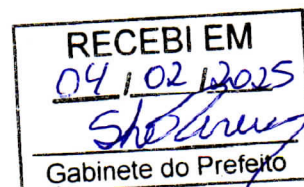 RECEBI EM
04 / 02 / 2025
Gabinete do Prefeito